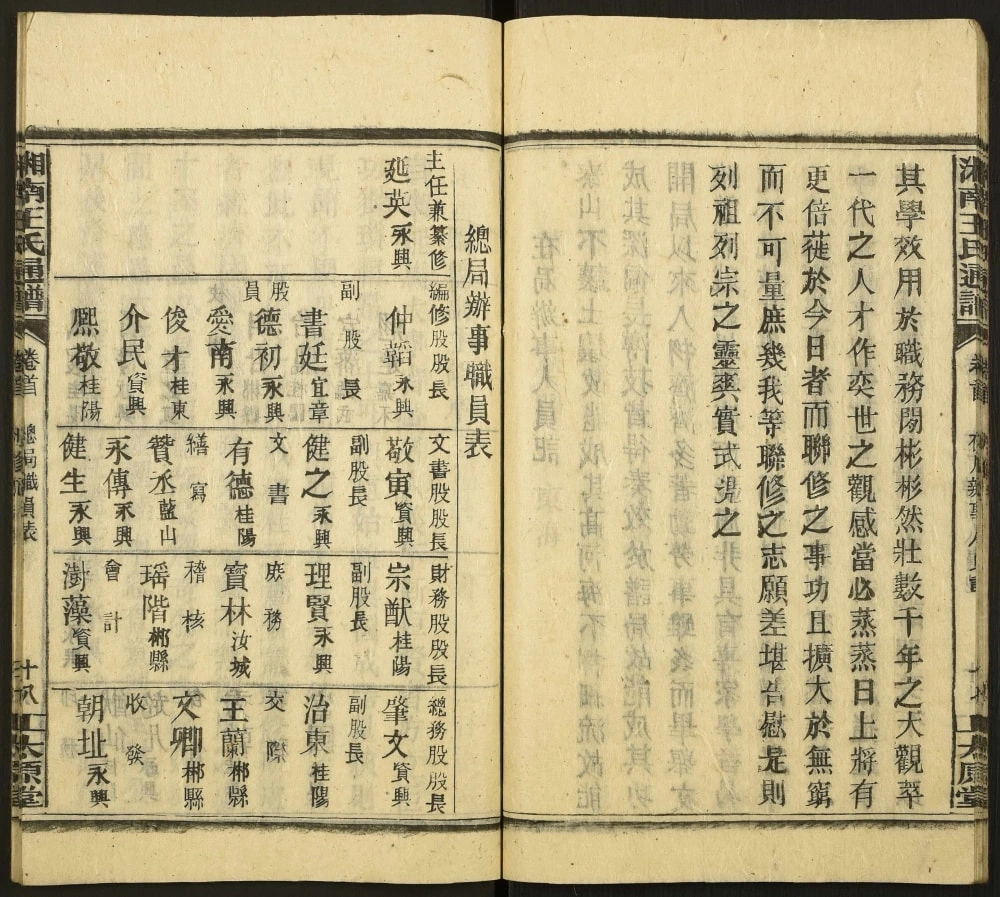 其學效用於職務閎彬彬然壯數千年之大觀萃
一代之人才作奕世之觀感當必蒸蒸日上將有
更倍蓰於今日者而聯修之事功且擴大於無窮
而不可量庶幾我等聯修之志願差堪告慰是則
列祖列宗之靈爽實式憑之
總局辦事職員表
主任兼纂修
延英永興
編修股股長
仲韜永興
副股長
書廷宜章
股員
德初永興
愛南永興
俊才桂東
介民資興
熙敬桂陽
文書股股長
敬寅資興
副股長
健之永興
文書
有德桂陽
繕寫
贊丞藍山
永傳永興
健生永興
財務股股長
宗猷桂陽
副股長
理賢永興
庶務
寶林汝城
稽核
瑶階郴縣
會計
澍藻資興
總務股股長
肇文資興
副股長
治東桂陽
交際
主蘭郴縣
文卿郴縣
收發
朝址永興
湘南王氏通譜
卷首
總局職員表
十八
太原堂